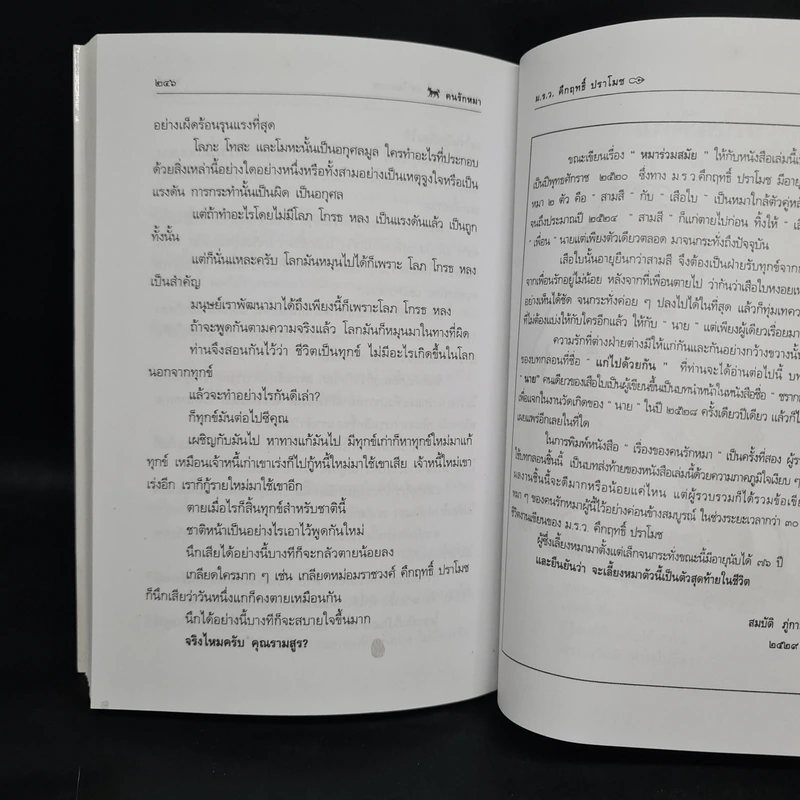 ๒๔๖
คนรักหมา
อย่างเผ็ดร้อนรุนแรงที่สุด
โลภะ โทสะ และโมหะนั้นเป็นอกุศลมูล ใครทำอะไรที่ประกอบ
ด้วยสิ่งเหล่านี้อย่างใดอย่างหนึ่งหรือทั้งสามอย่างเป็นเหตุจูงใจหรือเป็น
แรงดัน การกระทำนั้นเป็นผิด เป็นอกุศล
แต่ถ้าทำอะไรโดยไม่มีโลภ โกรธ หลง เป็นแรงดันแล้ว เป็นถูก
ทั้งนั้น
แต่ก็นั่นแหละครับ โลกมันหมุนไปได้ก็เพราะ โลภ โกรธ หลง
เป็นสำคัญ
มนุษย์เราพัฒนามาได้ถึงเพียงนี้ก็เพราะโลภ โกรธ หลง
ถ้าจะพูดกันตามความจริงแล้ว โลกมันก็หมุนมาในทางที่ผิด
ท่านจึงสอนกันไว้ว่า ชีวิตเป็นทุกข์ ไม่มีอะไรเกิดขึ้นในโลก
นอกจากทุกข์
แล้วจะทำอย่างไรกันดีเล่า?
ก็ทุกข์มันต่อไปซีคุณ
เผชิญกับมันไป หาทางแก้มันไป มีทุกข์เก่าก็หาทุกข์ใหม่มาแก้
ทุกข์ เหมือนเจ้าหนี้เก่าเขาเร่งก็ไปกู้หนี้ใหม่มาใช้เขาเสีย เจ้าหนี้ใหม่เขา
เร่งอีก เราก็กู้รายใหม่มาใช้เขาอีก
ตายเมื่อไรก็สิ้นทุกข์สำหรับชาตินี้
ชาติหน้าเป็นอย่างไรเอาไว้พูดกันใหม่
นึกเสียได้อย่างนี้บางทีก็จะกลัวตายน้อยลง
เกลียดใครมาก ๆ เช่น เกลียดหม่อมราชวงศ์ คึกฤทธิ์ ปราโมช
ก็นึกเสียว่าวันหนึ่งแกก็คงตายเหมือนกัน
นึกได้อย่างนี้บางทีก็จะสบายใจขึ้นมาก
จริงไหมครับ คุณรามสูร?
ม.ร.ว. คึกฤทธิ์ ปราโมช
ขณะเขียนเรื่อง " หมาร่วมสมัย " ให้กับหนังสือเล่มนี้
เป็นปีพุทธศักราช ๒๕๒๐ ซึ่งทาง ม.ร.ว คึกฤทธิ์ ปราโมช มีอายุ
หมา ๒ ตัว คือ " สามสี " กับ " เสือใบ " เป็นหมาใกล้ตัวคู่
จนถึงประมาณปี ๒๕๒๔ " สามสี " ก็แก่ตายไปก่อน ทิ้งให้ "
" เพื่อน " นายแต่เพียงตัวเดียวตลอด มาจนกระทั่งถึงปัจจุบัน
เสือใบนั้นอายุยืนกว่าสามสี จึงต้องเป็นฝ่ายรับทุกข์จาก
จากเพื่อนรักอยู่ไม่น้อย หลังจากที่เพื่อนตายไป ว่ากันว่าเสือใบหงอย
อย่างเห็นได้ชัด จนกระทั่งค่อย ๆ ปลงไปได้ในที่สุด แล้วก็ทุ่มเทความ
ที่ไม่ต้องแบ่งให้กับใครอีกแล้ว ให้กับ " นาย " แต่เพียงผู้เดียวเรื่อยมา
ความรักที่ต่างฝ่ายต่างมีให้แก่กันและกันอย่างกว้างขวางนั้น
ของบทกลอนที่ชื่อ " แก่ไปด้วยกัน " ที่ท่านจะได้อ่านต่อไปนี้
" นาย" คนเดียวของเสือใบเป็นผู้เขียนขึ้นเป็นบทนำหน้าในหนังสือชื่อ "
เพื่อแจกในงานวันเกิดของ " นาย " ในปี ๒๕๒๘ ครั้งเดียวปีเดียว แล้วก็
เผยแพร่อีกเลยในที่ใด
ในการพิมพ์หนังสือ " เรื่องของคนรักหมา " เป็นครั้งที่สอง
ใช้บทกลอนชิ้นนี้ เป็นบทส่งท้ายของหนังสือเล่มนี้ด้วยความภาคภูมิใจเงียบ ๆ
ผลงานชิ้นนี้จะดีมากหรือน้อยแค่ไหน แต่ผู้รวบรวมก็ได้รวมข้อ
หมา ๆ ของคนรักหมาผู้นี้ไว้อย่างค่อนข้างสมบูรณ์ ในช่วงระยะเวลากว่า ๓๐
ชีวิตงานเขียนของ ม.ร.ว. คึกฤทธิ์ ปราโมช
ผู้ซึ่งเลี้ยงหมามาตั้งแต่เล็กจนกระทั่งขณะนี้มีอายุนับได้ ๗๖ ปี
และยืนยันว่า จะเลี้ยงหมาตัวนี้เป็นตัวสุดท้ายในชีวิต
สมบัติ
๒๕๒๙